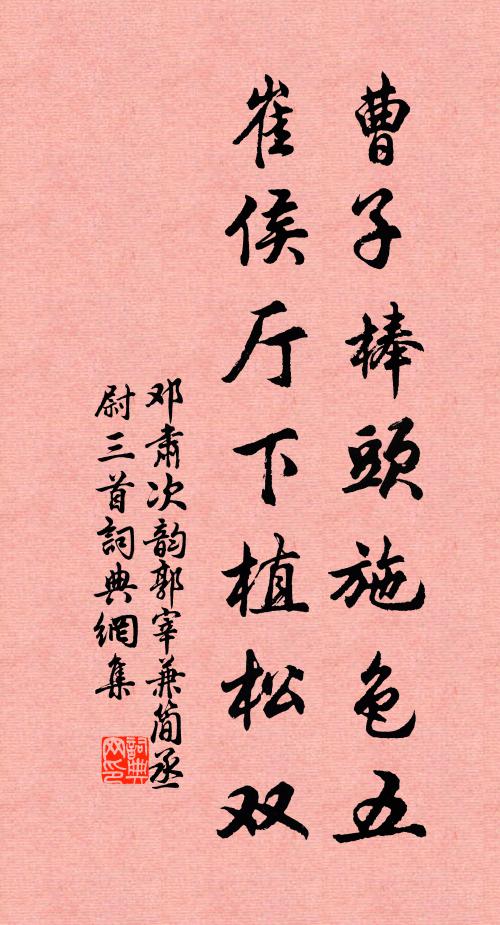 曹子棒頭施色五
崔侯厅下植松双
邓肃次韵郭宰兼简丞
尉三首詞典網集
詞典网印